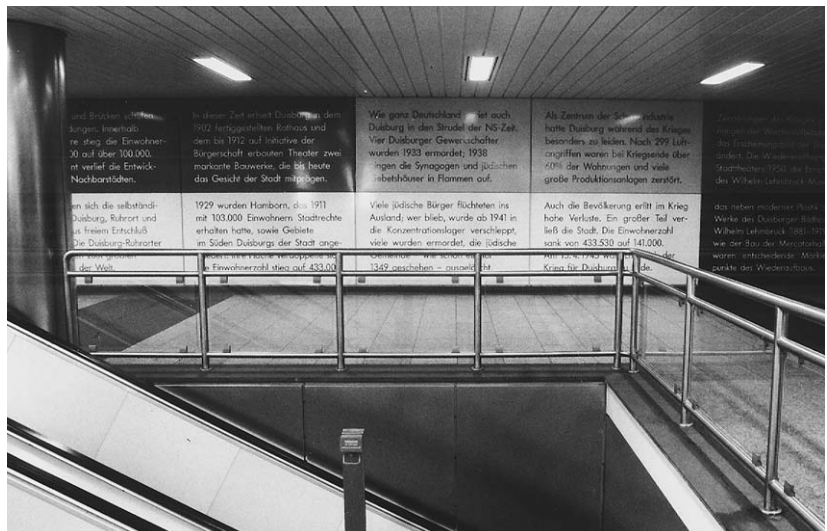 und Brücken schufen
dungen. Innerhalb
re stieg die Einwohner-
00 auf über 100.000.
nt verlief die Entwick-
Nachbarstädten.
en sich die selbständi-
Duisburg, Ruhrort und
us freiem Entschluß
Die Duisburg-Ruhrorter
der Welt.
In dieser Zeit erhielt Duisburg in dem
1902 fertiggestellten Rathaus und
dem bis 1912 auf Initiative der
Bürgerschaft erbauten Theater zwei
markante Bauwerke, die bis heute
das Gesicht der Stadt mitprägen.
1929 wurden Hamborn, das 1911
mit 103.000 Einwohnern Stadtrechte
erhalten hatte, sowie Gebiete
im Süden Duisburgs der Stadt ange-
ihre Fläche verdoppelte sich
die Einwohnerzahl stieg auf 433.00
Wie ganz Deutschland auch
Duisburg in den Strudel der NS-Zeit.
Vier Duisburger Gewerkschafter
wurden 1933 ermordet; 1938
gingen die Synagogen und jüdischen
Gebetshäuser in Flammen auf.
Viele jüdische Bürger flüchteten ins
Ausland; wer blieb, wurde ab 1941 in
die Konzentrationslager verschleppt,
viele wurden ermordet, die jüdische
Gemeinde – wie schon einmal
1349 geschehen – ausgelöscht.
Als Zentrum der Schwerindustrie
hatte Duisburg während des Krieges
besonders zu leiden. Nach 299 Luft-
angriffen waren bei Kriegsende über
60% der Wohnungen und viele
große Produktionsanlagen zerstört.
Auch die Bevölkerung erlitt im Krieg
hohe Verluste. Ein großer Teil ver-
ließ die Stadt. Die Einwohnerzahl
sank von 433.530 auf 141.000.
Am 1945 war der
Krieg für Duisburg zu Ende.
des Wilhelm-Lehmbruck-Mus
das neben moderner Plastik
Werke des Duisburger Bildha
Wilhelm Lehmbruck (1881-1919
wie der Bau der Mercatorhall
waren entscheidende Markie
punkte des Wiederaufbaus.